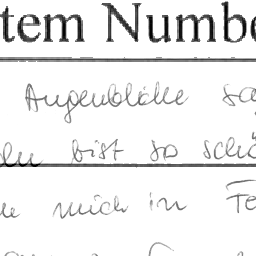 tem Numbe
Augenblicke sa
du bist so schö
mich in Fe